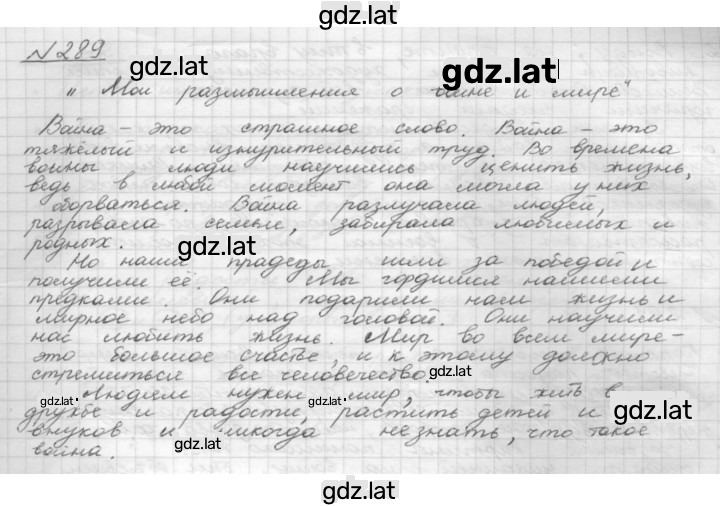 gdz.lat
№289
gdz.lat
gdz.lat
„Мои размышления о войне и мире"
Война - это страшное слово. Война - это
тяжёлый и изнурительный труд. Во времена
войны люди научились ценить жизнь,
ведь в любой момент она могла у них
оборваться. Война разлучала людей,
разрывала семьи, забирала любимых и
родных. gdz.lat
Но наши прадеды шли за победой и
получили её. Мы гордимся нашими
предками. Они подарили нам жизнь и
мирное небо над головой. Они научили
нас любить жизнь. Мир во всем мире -
это большое счастье, и к этому должно
стремиться все человечество. gdz.lat
gdz.lat Людям нужен gdz.lat мир, чтобы жить в
дружбе и радости, растить детей и gdz.lat
внуков и никогда не знать, что такое
война. gdz.lat
gdz.lat